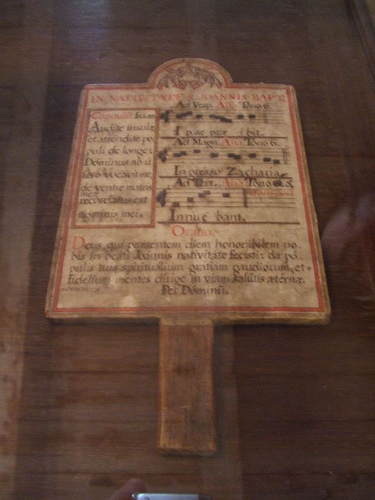 IN NATIVITATE S. IOANNIS BAPT.
Capitulum Isaiæ
Audite insulæ
et attendite po
puli de longe:
Dominus ab u
tero vocavit me,
de ventre matris
meæ
recordatus est
nominis mei.
Ad Vesp. Ana Tono 6.
Ipse præ ibit.
Ad Magn. Ana Tono 6.
Ingresso Zacharia
Ad Tert. Ana Tono
Innue bant.
Oratio.
Deus, qui præsentem diem honorabilem no
bis in beati Joannis nativitate fecisti: da po
pulis tuis spiritualium gratiam gaudiorum, et
fidelium mentes dirige in viam salutis æternæ.
Per Dominū.